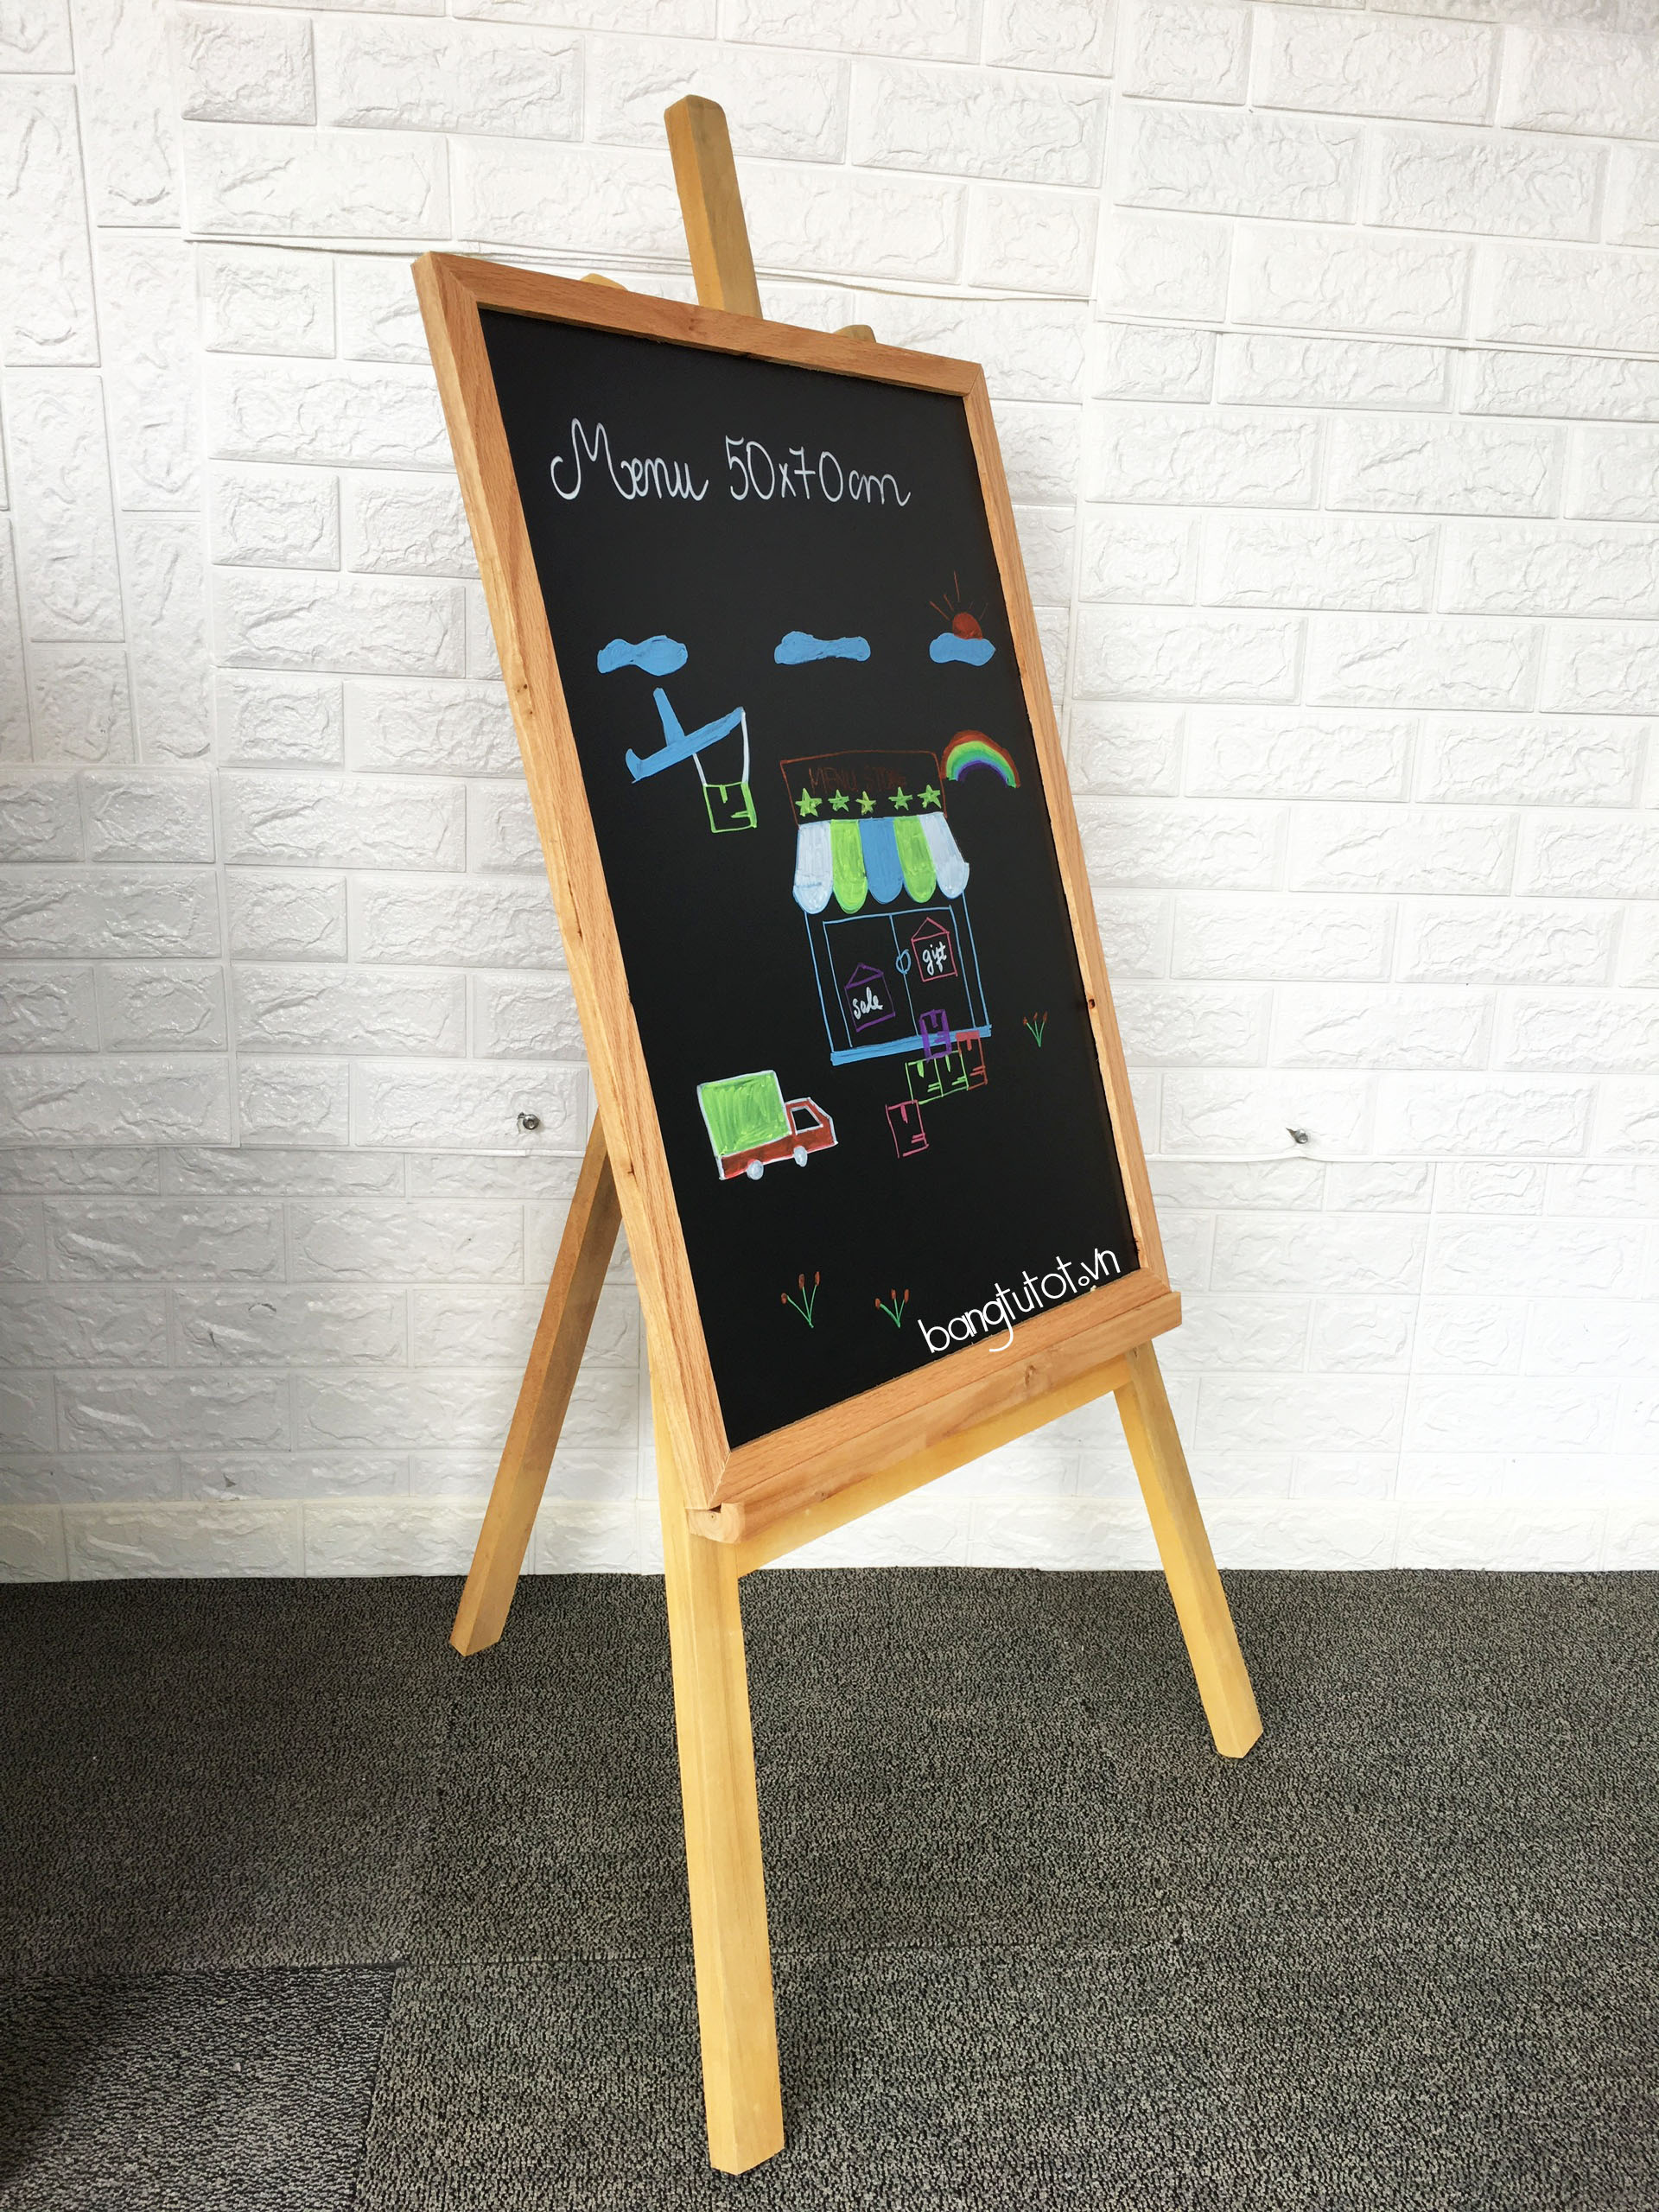 Menu 50x70cm
MENU STORE
gift
sale
bangtutot.vn